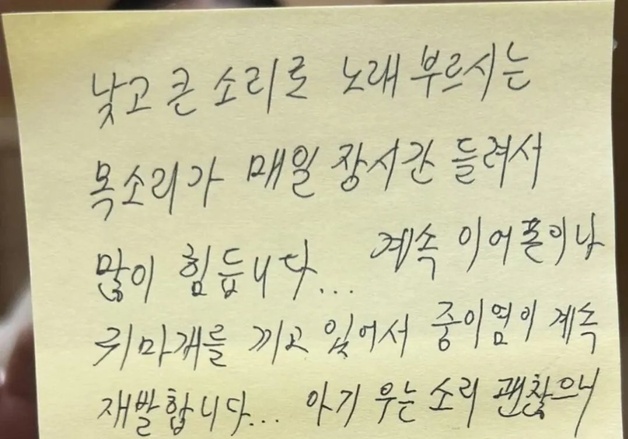 낮고 큰 소리로 노래 부르시는
목소리가 매일 장시간 들려서
많이 힘듭니다... 계속 이어폰이나
귀마개를 끼고 있어서 중이염이 계속
재발합니다... 아기 우는 소리 괜찮으니